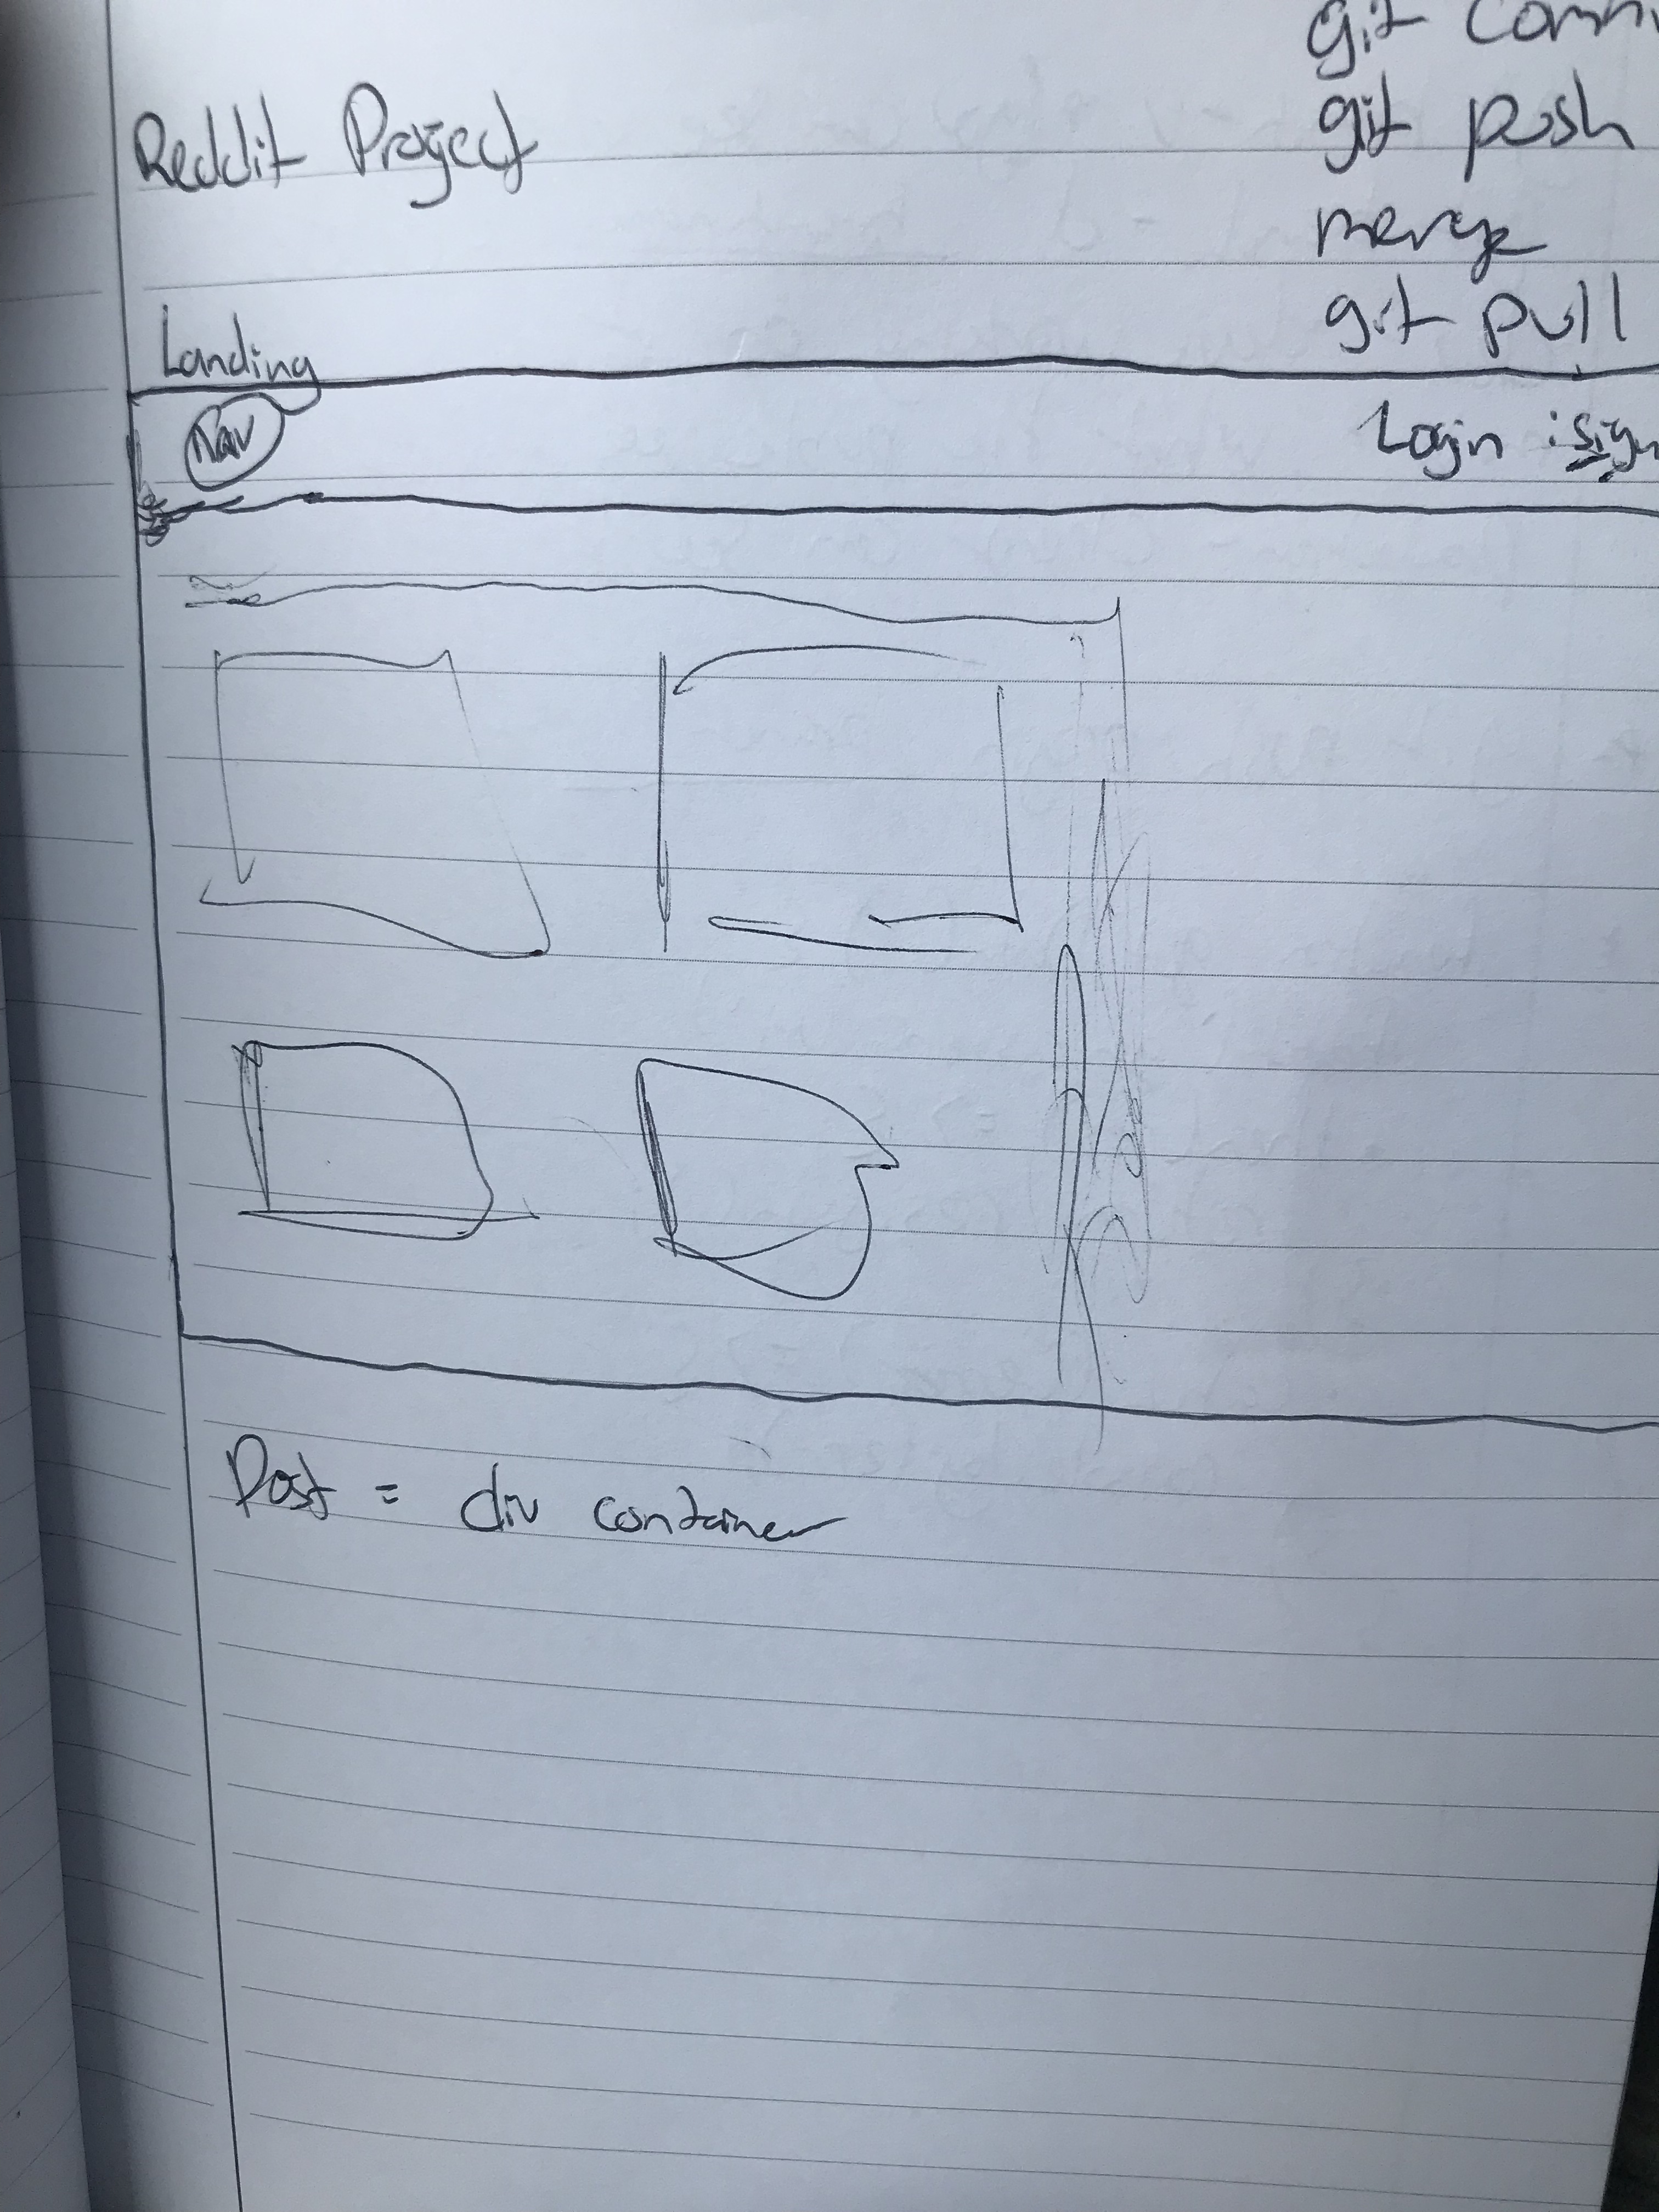 git comm
Reddit Project
git push
merge
git pull
Landing
Nav
Login : sign
Post = div container